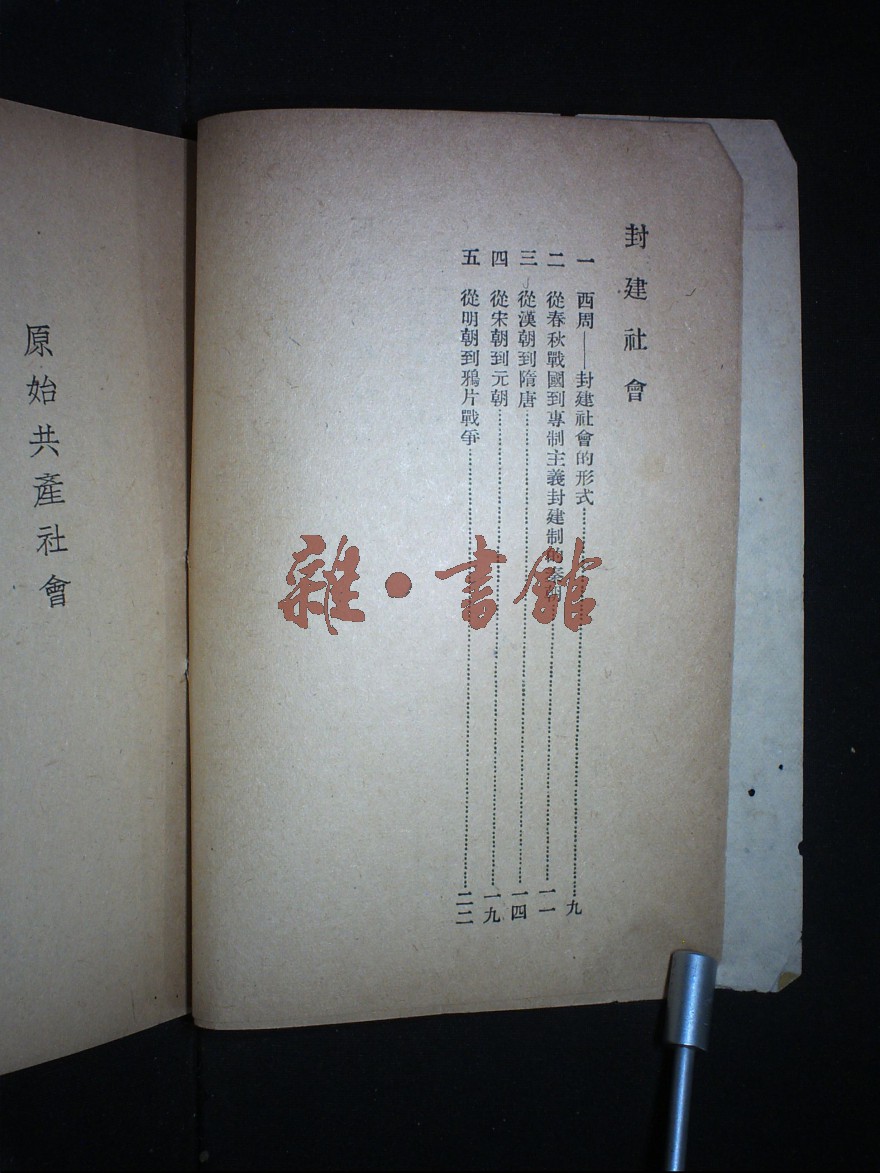 封建社會
一 西周——封建社會的形式……九
二 從春秋戰國到專制主義封建制的秦……一一
三 從漢朝到隋唐……一四
四 從宋朝到元朝……一九
五 從明朝到鴉片戰爭……二二
原始共產社會
雜·書館